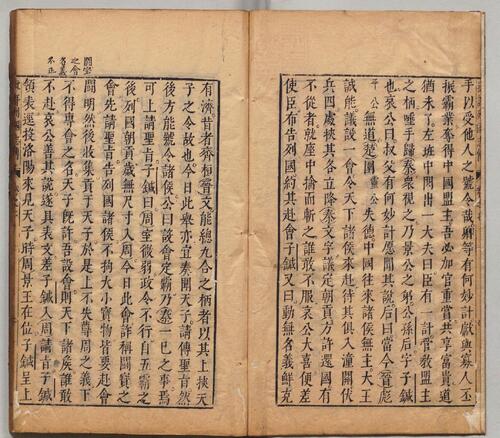 手以受他人之號令哉麻等有何妙計獻與寡人丕
振霸業奪得中國盟主吾必加官重賞共享富貴道
猶未了左班中閃出一大夫曰臣有一計當教盟主
之柄唾手歸秦衆視之乃景公之弟公孫后字子鍼
也哀公曰叔父有何妙計愿聞其說后曰當今晉彪
平公無道楚圍靈公失德中國往來諸侯無主大王
誠能議設一會令天下諸侯來赴待其俱入潼關伏
兵四處挾其立降秦文字議定朝貢方許還國有
不從者就座中擒而斬之誰敢不服哀公大喜便差
使臣布告列國約其赴會子鍼又曰動無名義鮮克
有濟昔者齊桓晉文能總九合之柄者以其上挾天
子之令故也今日此舉亦宜奏聞天子請傳聖旨然
後方能號令諸侯公曰設會定霸乃秦一已之事焉
可上請聖旨子鍼曰周室微弱政令不行自五霸之
後列國朝貢歲無尺寸入周今日此會詐稱鬪寶之
會先請聖旨告列國諸侯不拘大小寶物皆要赴會
鬪明然後收集貢于天子於是上不失尊周之義下
不得專會之名天子既許吾設會則天下諸侯誰敢
不赴哀公善其說遂具表文差子鍼入周請旨子鍼
領表逕投洛陽來見天子時周景王在位子鍼呈上
鬪寶
之會
名義
不正